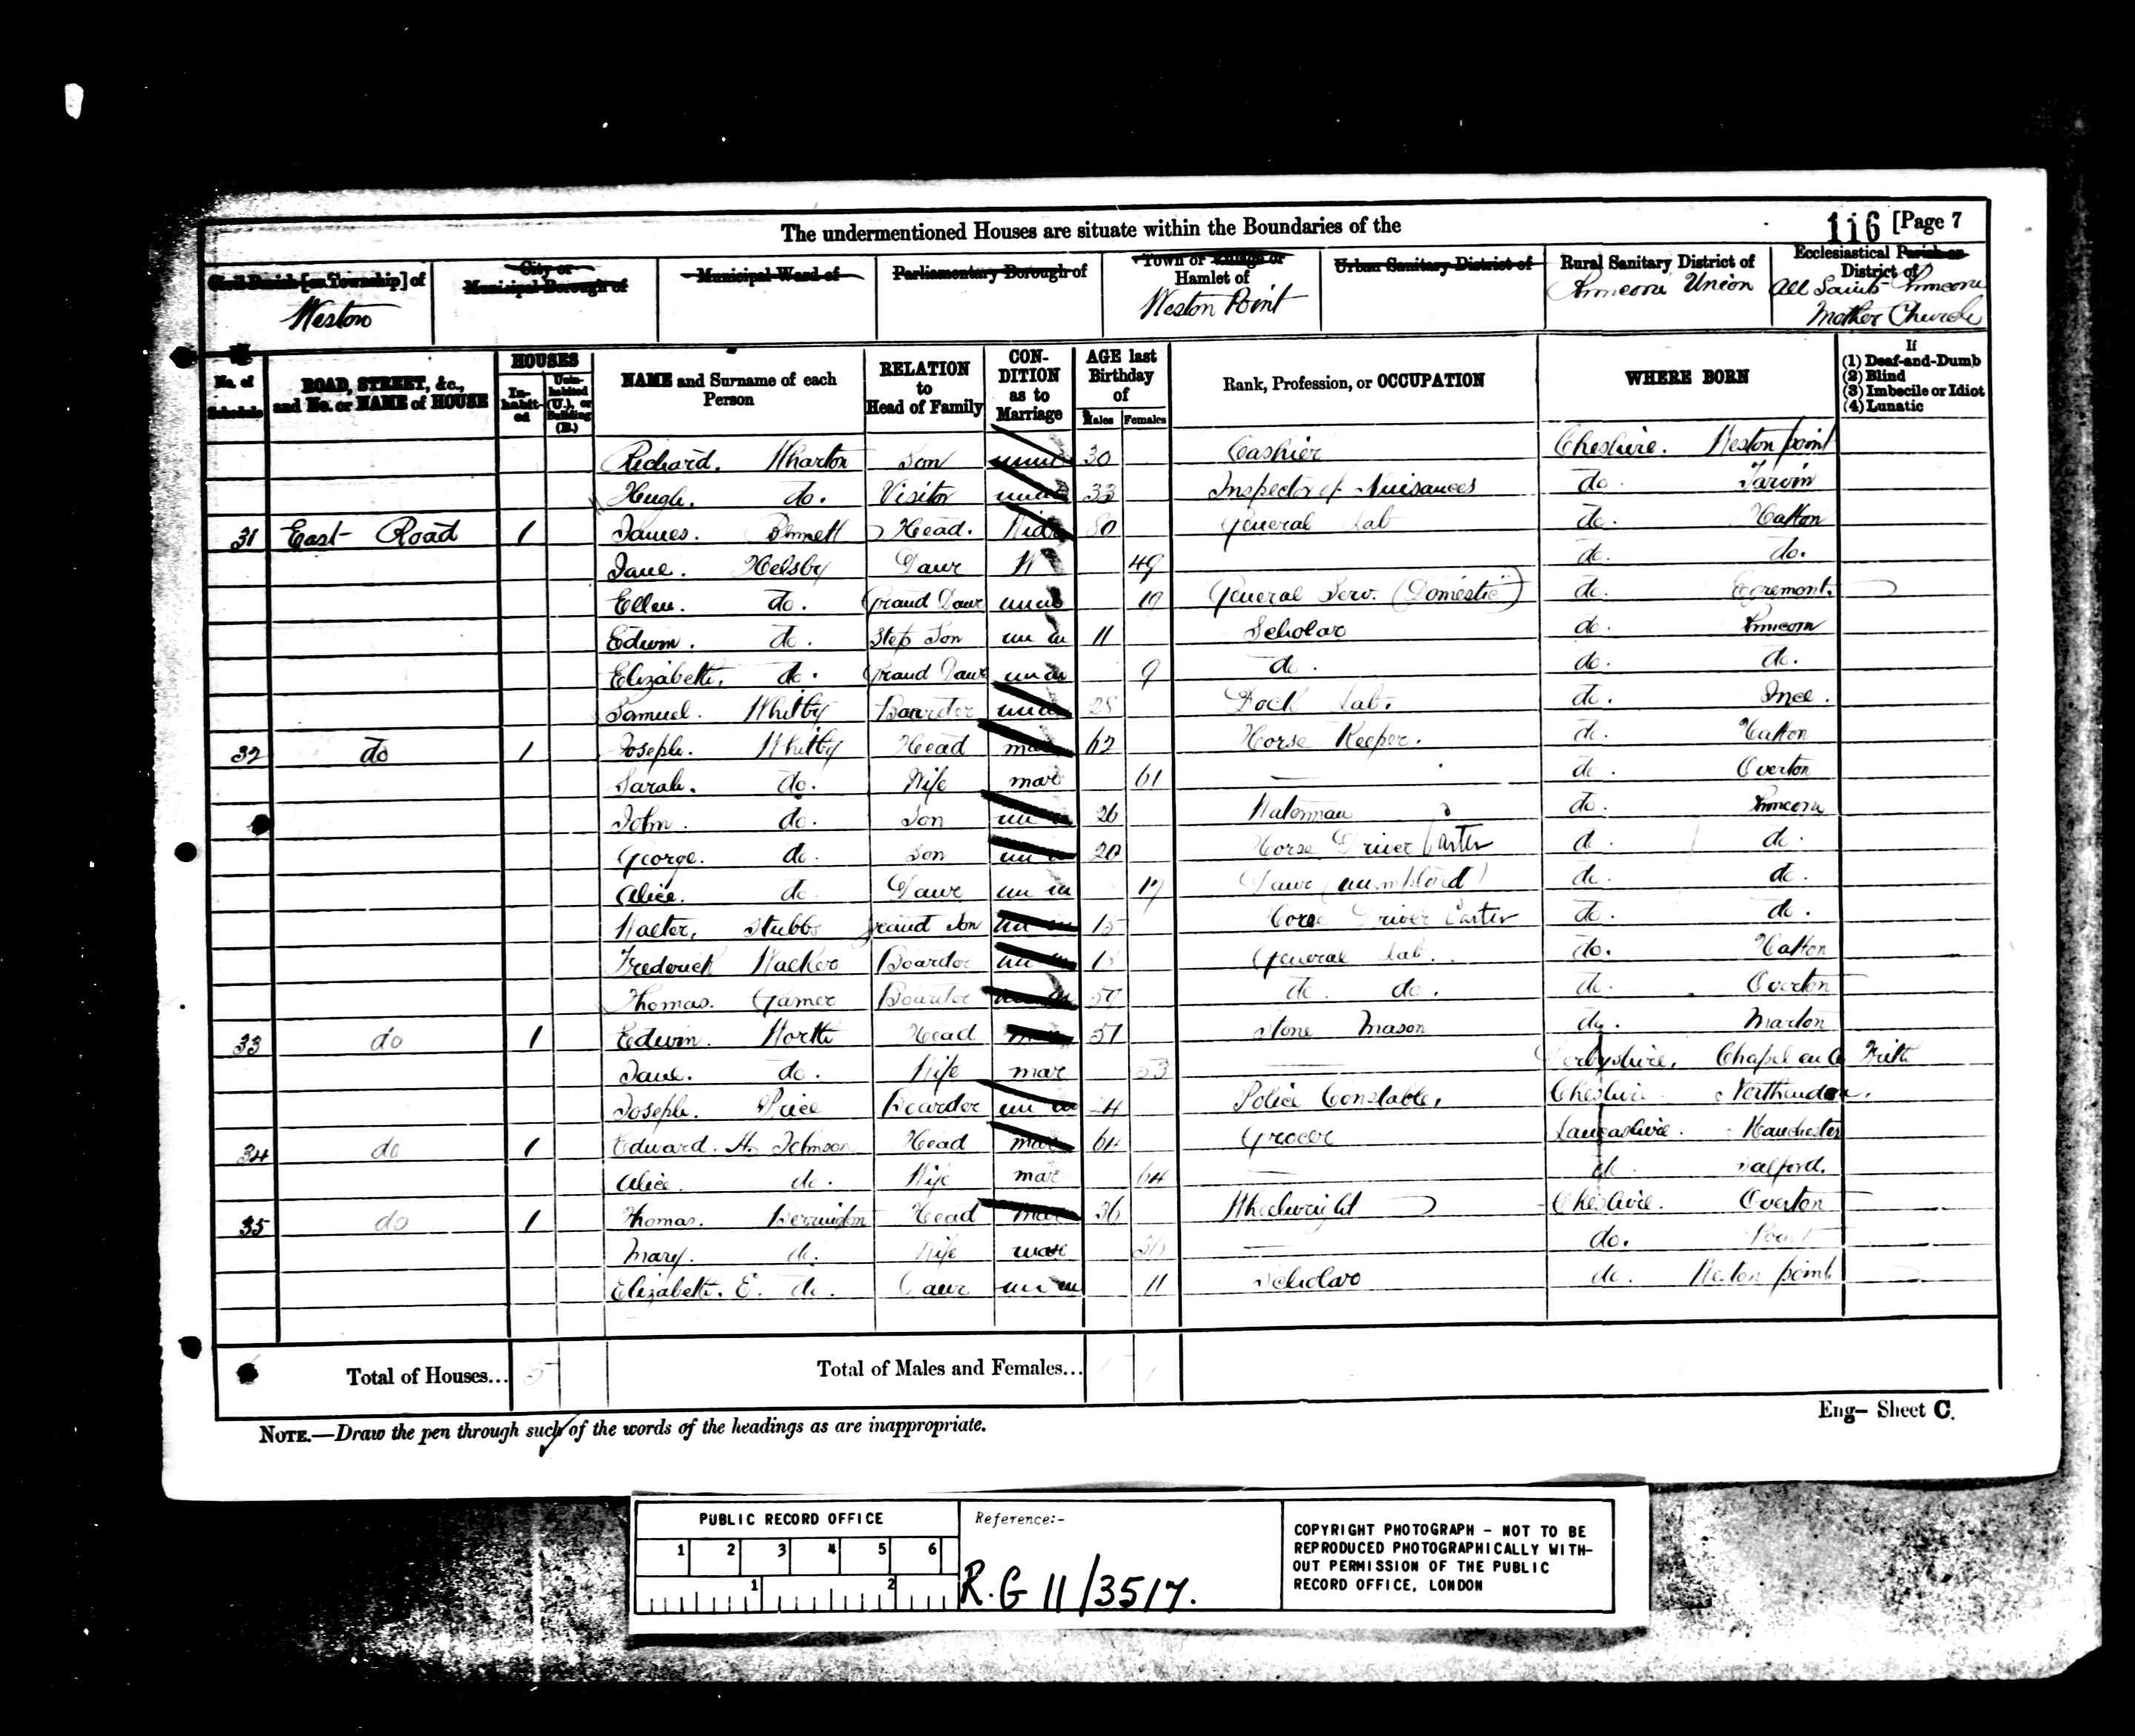 The undermentioned Houses are situate within the Boundaries of the
116 [Page 7
Civil Parish [or Township] of
Weston
City or Municipal Borough of
Municipal Ward of
Parliamentary Borough of
Town or Village or Hamlet of
Weston Point
Urban Sanitary District of
Rural Sanitary District of
Runcorn Union
Ecclesiastical Parish or District of
All Saints Runcorn
Mother Church
No. of Schedule
ROAD, STREET, &c., and No. or NAME of HOUSE
HOUSES
In-habit-ed
Unin-habited (U.), or Building (B.)
NAME and Surname of each Person
RELATION to Head of Family
CON-DITION as to Marriage
AGE last Birthday of
Males Females
Rank, Profession, or OCCUPATION
WHERE BORN
If
(1) Deaf-and-Dumb
(2) Blind
(3) Imbecile or Idiot
(4) Lunatic
Richard. Wharton Son 30 Cashier Cheshire. Weston point
Hugh. do. Visitor 33 Inspector of Nuisances do. Tarvin
31 East Road 1 James. Bennett Head. Widr 80 General Lab do. Halton
Jane. Helsby Daur W 49 do. do.
Ellen. do. Grand Daur unm 19 General Serv. (Domestic) do. Egremont.
Edwin. do. Step Son un m 11 Scholar do. Runcorn
Elizabeth. do. Grand Daur un m 9 do. do. do.
Samuel. Whitby Boarder unm 28 Dock Lab. do. Ince.
32 do 1 Joseph. Whitby Head mar 62 Horse Keeper. do. Halton
Sarah. do. Wife mar 61 — do. Overton
John. do. Son un 26 Waterman do. Runcorn
George. do. Son un m 20 Horse Driver Carter do. do.
Alice. do. Daur un m 17 Daur (unemployed) do. do.
Walter. Stubbs Grand Son un m 15 Horse Driver Carter do. do.
Frederick Walker Boarder un m General Lab. do. Halton
Thomas. Garner Boarder do. do. do. Overton
33 do 1 Edwin. North Head 51 Stone Mason do. Marton
Jane. do. Wife mar 53 — Derbyshire. Chapel en le Frith
Joseph. Price Boarder un m 24 Police Constable. Cheshire Northenden.
34 do 1 Edward. H. Johnson Head mar 64 Grocer Lancashire. Manchester
Alice. do. Wife mar 64 — do. Salford.
35 do 1 Thomas. Head mar 36 Wheelwright Cheshire. Overton
Mary. do. Wife mar 36 — do.
Elizabeth. E. do. Daur un m 11 Scholar do. Weston point
Total of Houses... 5
Total of Males and Females...
NOTE.—Draw the pen through such of the words of the headings as are inappropriate.
Eng— Sheet C.
PUBLIC RECORD OFFICE
1 2 3 4 5 6
1 2
Reference:-
R.G 11/3517.
COPYRIGHT PHOTOGRAPH - NOT TO BE
REPRODUCED PHOTOGRAPHICALLY WITH-
OUT PERMISSION OF THE PUBLIC
RECORD OFFICE, LONDON